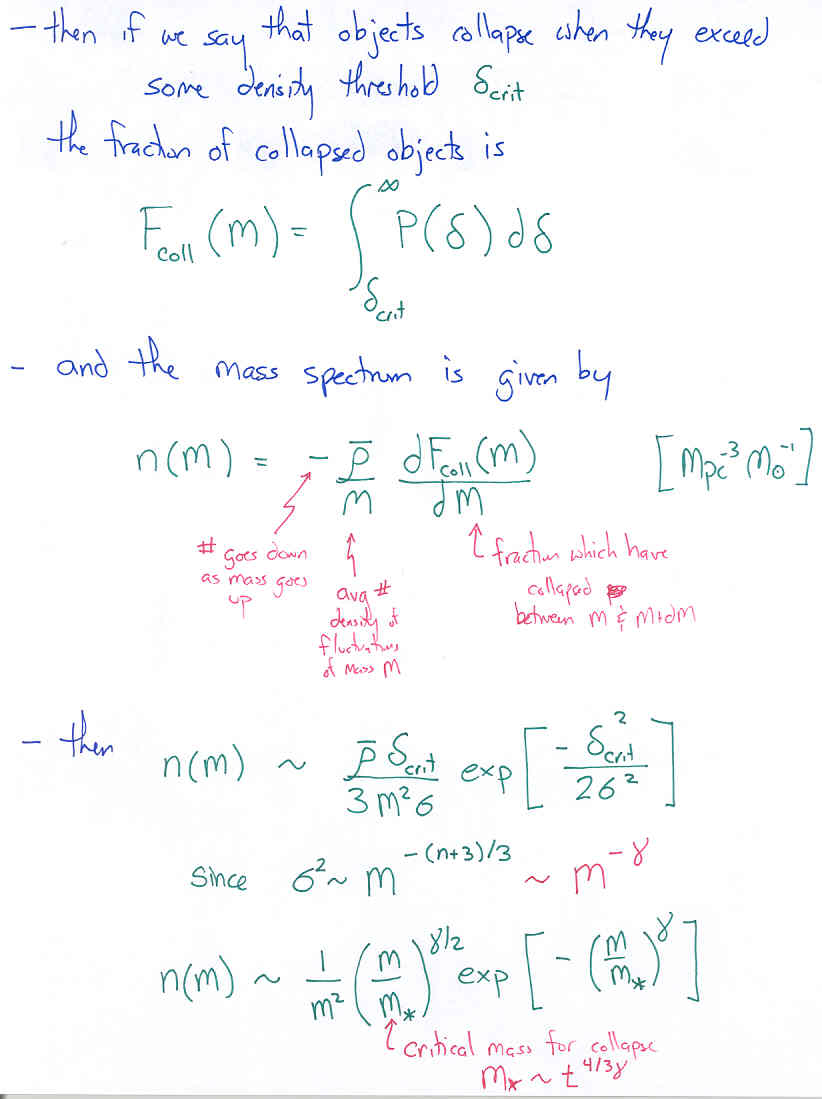 - then if we say that objects collapse when they exceed
some density threshold δcrit
the fraction of collapsed objects is
Fcoll (m) = ∫δcrit^∞ P(δ) dδ
- and the mass spectrum is given by
n(m) = - ρ̄/m dFcoll(m)/dm [Mpc^-3 M⊙^-1]
# goes down
as mass goes
up
avg #
density of
fluctuations
of mass M
fraction which have
collapsed
between m & m+dm
- then n(m) ~ ρ̄ δcrit / 3m²σ exp [ - δcrit² / 2σ² ]
Since σ² ~ m^-(n+3)/3 ~ m^-γ
n(m) ~ 1/m² (m/m*)^γ/2 exp [ - (m/m*)^γ ]
critical mass for collapse
m* ~ t^4/3γ